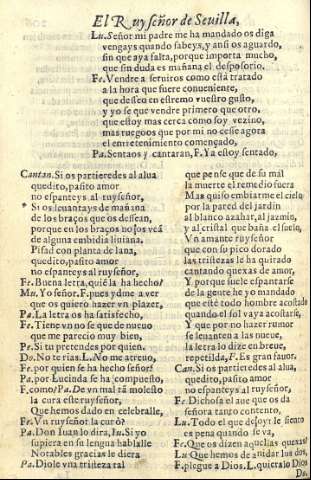 El Ruyseñor de Seuilla,
Lu. Señor mi padre me ha mandado os diga
vengays quando sabeys, y ansi os aguardo,
sin que aya falta, porque importa mucho,
que sin duda es mañana el desposorio.
Fe. Vendre a seruiros como està tratado
a la hora que fuere conueniente,
que desseo en estremo vuestro gusto,
y yo se que vendre primero que otro,
que estoy mas cerca como soy vezino,
mas ruegoos que por mi no cesse agora
el entretenimiento començado,
Pa. Sentaos y cantaran, F. Ya estoy sentado,
Cantan. Si os partieredes al alua
quedito, pasito amor
no espanteys al ruyseñor,
Si os leuantays de mañana
de los braços que os dessean,
porque en los braços no los vea
de alguna embidia liuiana.
Pisad con planta de lana,
quedito, pasito amor
no espanteys al ruyseñor,
Fe. Buena letra, quiẽ la ha hecho?
Mu. Yo señor F. pues ydme a ver
que os quiero hazer vn plazer,
Pa. La letra os ha satisfecho,
Fe. Tiene vn no se que de nueuo
que me parecio muy bien,
Pe. Si tu pretendes por quien.
Do. No te rias. L. No me atreuo,
Fe. por quien se ha hecho señor?
Pa. por Lucinda se ha compuesto,
F. como? Pa. De vn mal tã molesto
la cura este ruyseñor,
Que hemos dado en celebralle,
Fe. Vn ruyseñor la curò?
Pa. Don Iuan lo dira, Iu. Si yo
supiera en su lengua hablalle
Notables gracias le diera
Pa. Diole vna tristeza tal
que pense que de su mal
la muerte el remedio fuera
Mas quiso embiarme el cielo
por la pared del jardin
al blanco azahar, al jazmin,
y al cristal que baña el suelo,
Vn amante ruyseñor
que con su pico dorado
las tristezas le ha quirado
cantando quexas de amor,
Y porque suele espantarle
de la gente he yo mandado
que estè todo hombre acostado
quando el sol vaya acostarse,
Y que por no hazer rumor
se leuanten a las nueue,
la letra lo dize en breue,
repetilda, F. Es gran fauor.
Can. Si os partieredes al alua,
quedito, pasito amor
no espanteys al ruyseñor,
Fe. Dichosa el aue que os da
señora tanto contento,
Lu. Todo el que de joy le siento
es pena quando se va,
Fe. Que os dizen aquellas quexas?
Lu. Que hemos de anidar los dos,
F. plegue a Dios. L. quieralo Dios